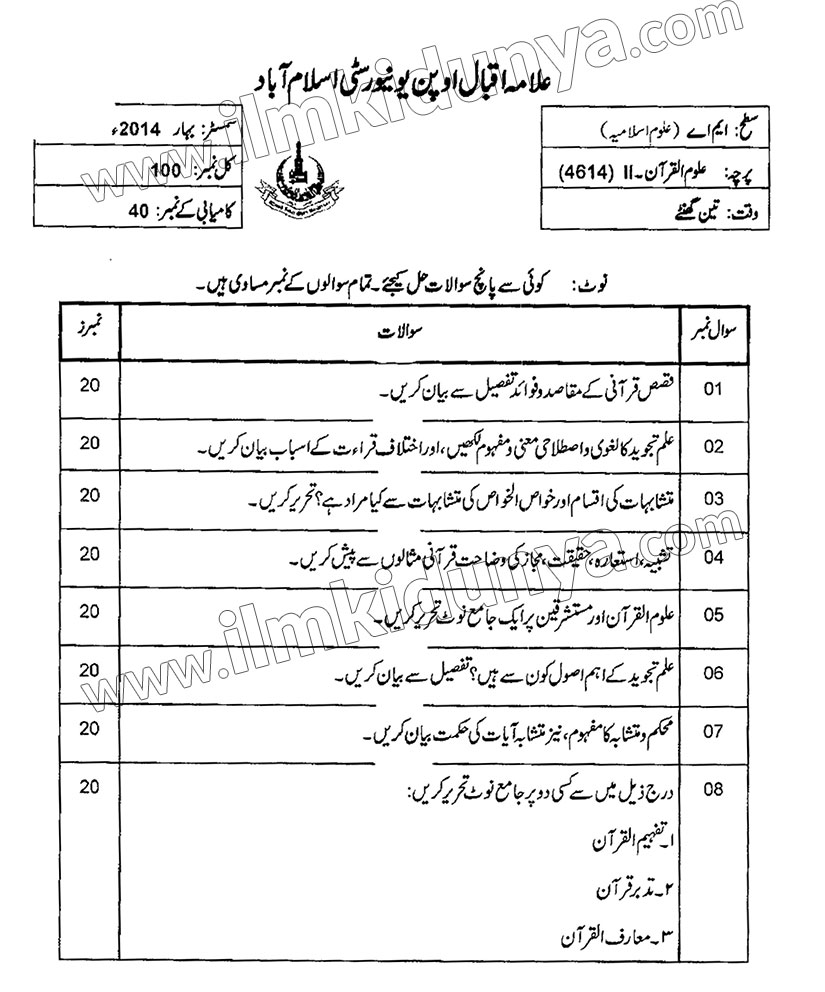 www.ilmkidunya.com
علامہ اقبال اوپن یونیورسٹی اسلام آباد
سطح: ایم اے (علوم اسلامیہ)
پرچہ: علوم القرآن۔II (4614)
وقت: تین گھنٹے
سمسٹر: بہار 2014ء
کل نمبر: 100
کامیابی کے نمبر: 40
نوٹ: کوئی سے پانچ سوالات حل کیجئے۔ تمام سوالوں کے نمبر مساوی ہیں۔
سوال نمبر سوالات نمبرز
01 قصص قرآنی کے مقاصد و فوائد تفصیل سے بیان کریں۔ 20
02 علم تجوید کا لغوی و اصطلاحی معنی و مفہوم لکھیں، اور اختلاف قراءت کے اسباب بیان کریں۔ 20
03 متشابہات کی اقسام اور خواص الخواص کی متشابہات سے کیا مراد ہے؟ تحریر کریں۔ 20
04 تشبیہ، استعارہ، حقیقت، مجاز کی وضاحت قرآنی مثالوں سے پیش کریں۔ 20
05 علوم القرآن اور مستشرقین پر ایک جامع نوٹ تحریر کریں۔ 20
www.ilmkidunya.com
06 علم تجوید کے اہم اصول کون سے ہیں؟ تفصیل سے بیان کریں۔ 20
07 محکم و متشابہ کا مفہوم، نیز متشابہ آیات کی حکمت بیان کریں۔ 20
08 درج ذیل میں سے کسی دو پر جامع نوٹ تحریر کریں: 20
۱۔ تفہیم القرآن
۲۔ تدبر قرآن
۳۔ معارف القرآن